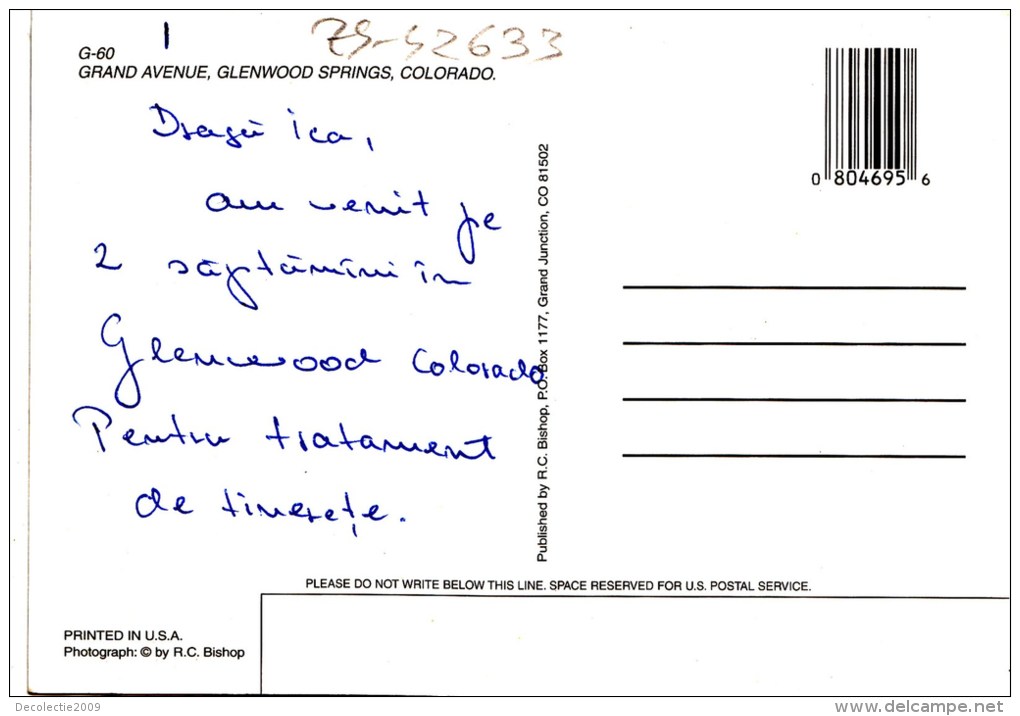 I
79-42633
G-60
GRAND AVENUE, GLENWOOD SPRINGS, COLORADO.
Dragă Ica,
am venit pe
2 săptămîni în
Glenwood Colorado
Pentru tratament
de tinerețe.
Published by R.C. Bishop, P.O. Box 1177, Grand Junction, CO 81502
0 804695 6
PLEASE DO NOT WRITE BELOW THIS LINE. SPACE RESERVED FOR U.S. POSTAL SERVICE.
PRINTED IN U.S.A.
Photograph: © by R.C. Bishop
Decolectie2009
delcampe.net